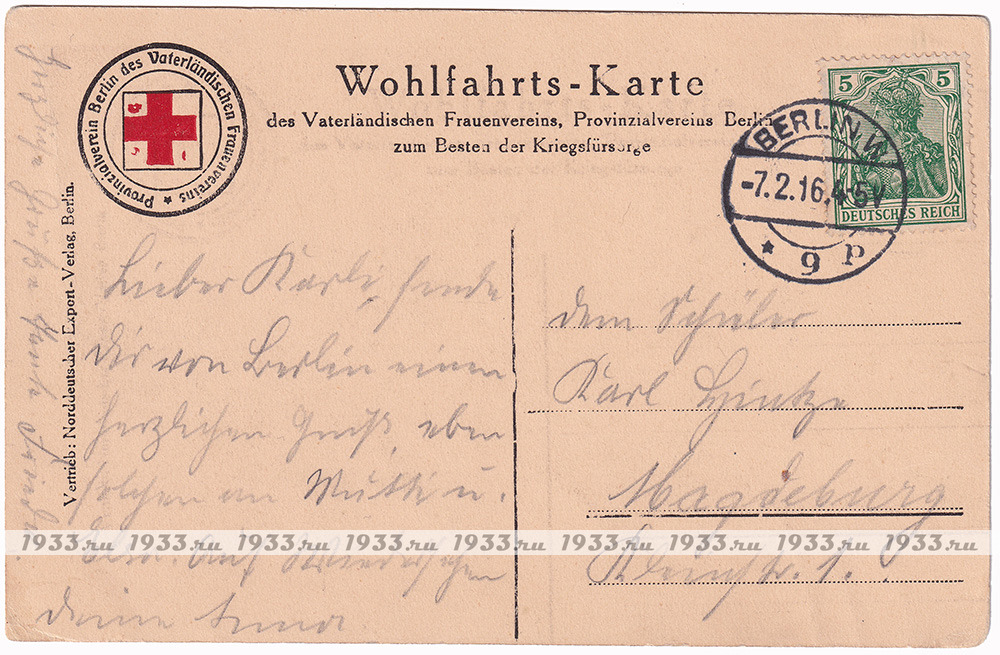 Wohlfahrts-Karte
des Vaterländischen Frauenvereins, Provinzialvereins Berlin
zum Besten der Kriegsfürsorge
Provinzialverein Berlin des Vaterländischen Frauenvereins
5 5
DEUTSCHES REICH
BERLIN.W.
-7.2.16.4-5V
* 9 P
Vertrieb: Norddeutscher Export-Verlag, Berlin.
Lieber Karli, sende
Dir von Berlin einen
herzlichen Gruß, eben
solchen an Mutti u.
Auf Wiedersehen
Deine
Herzliche Grüße Tante
dem Schüler
Karl Hintze
Magdeburg
1933.ru 1933.ru 1933.ru 1933.ru 1933.ru 1933.ru 1933.ru 1933.ru 1933.ru